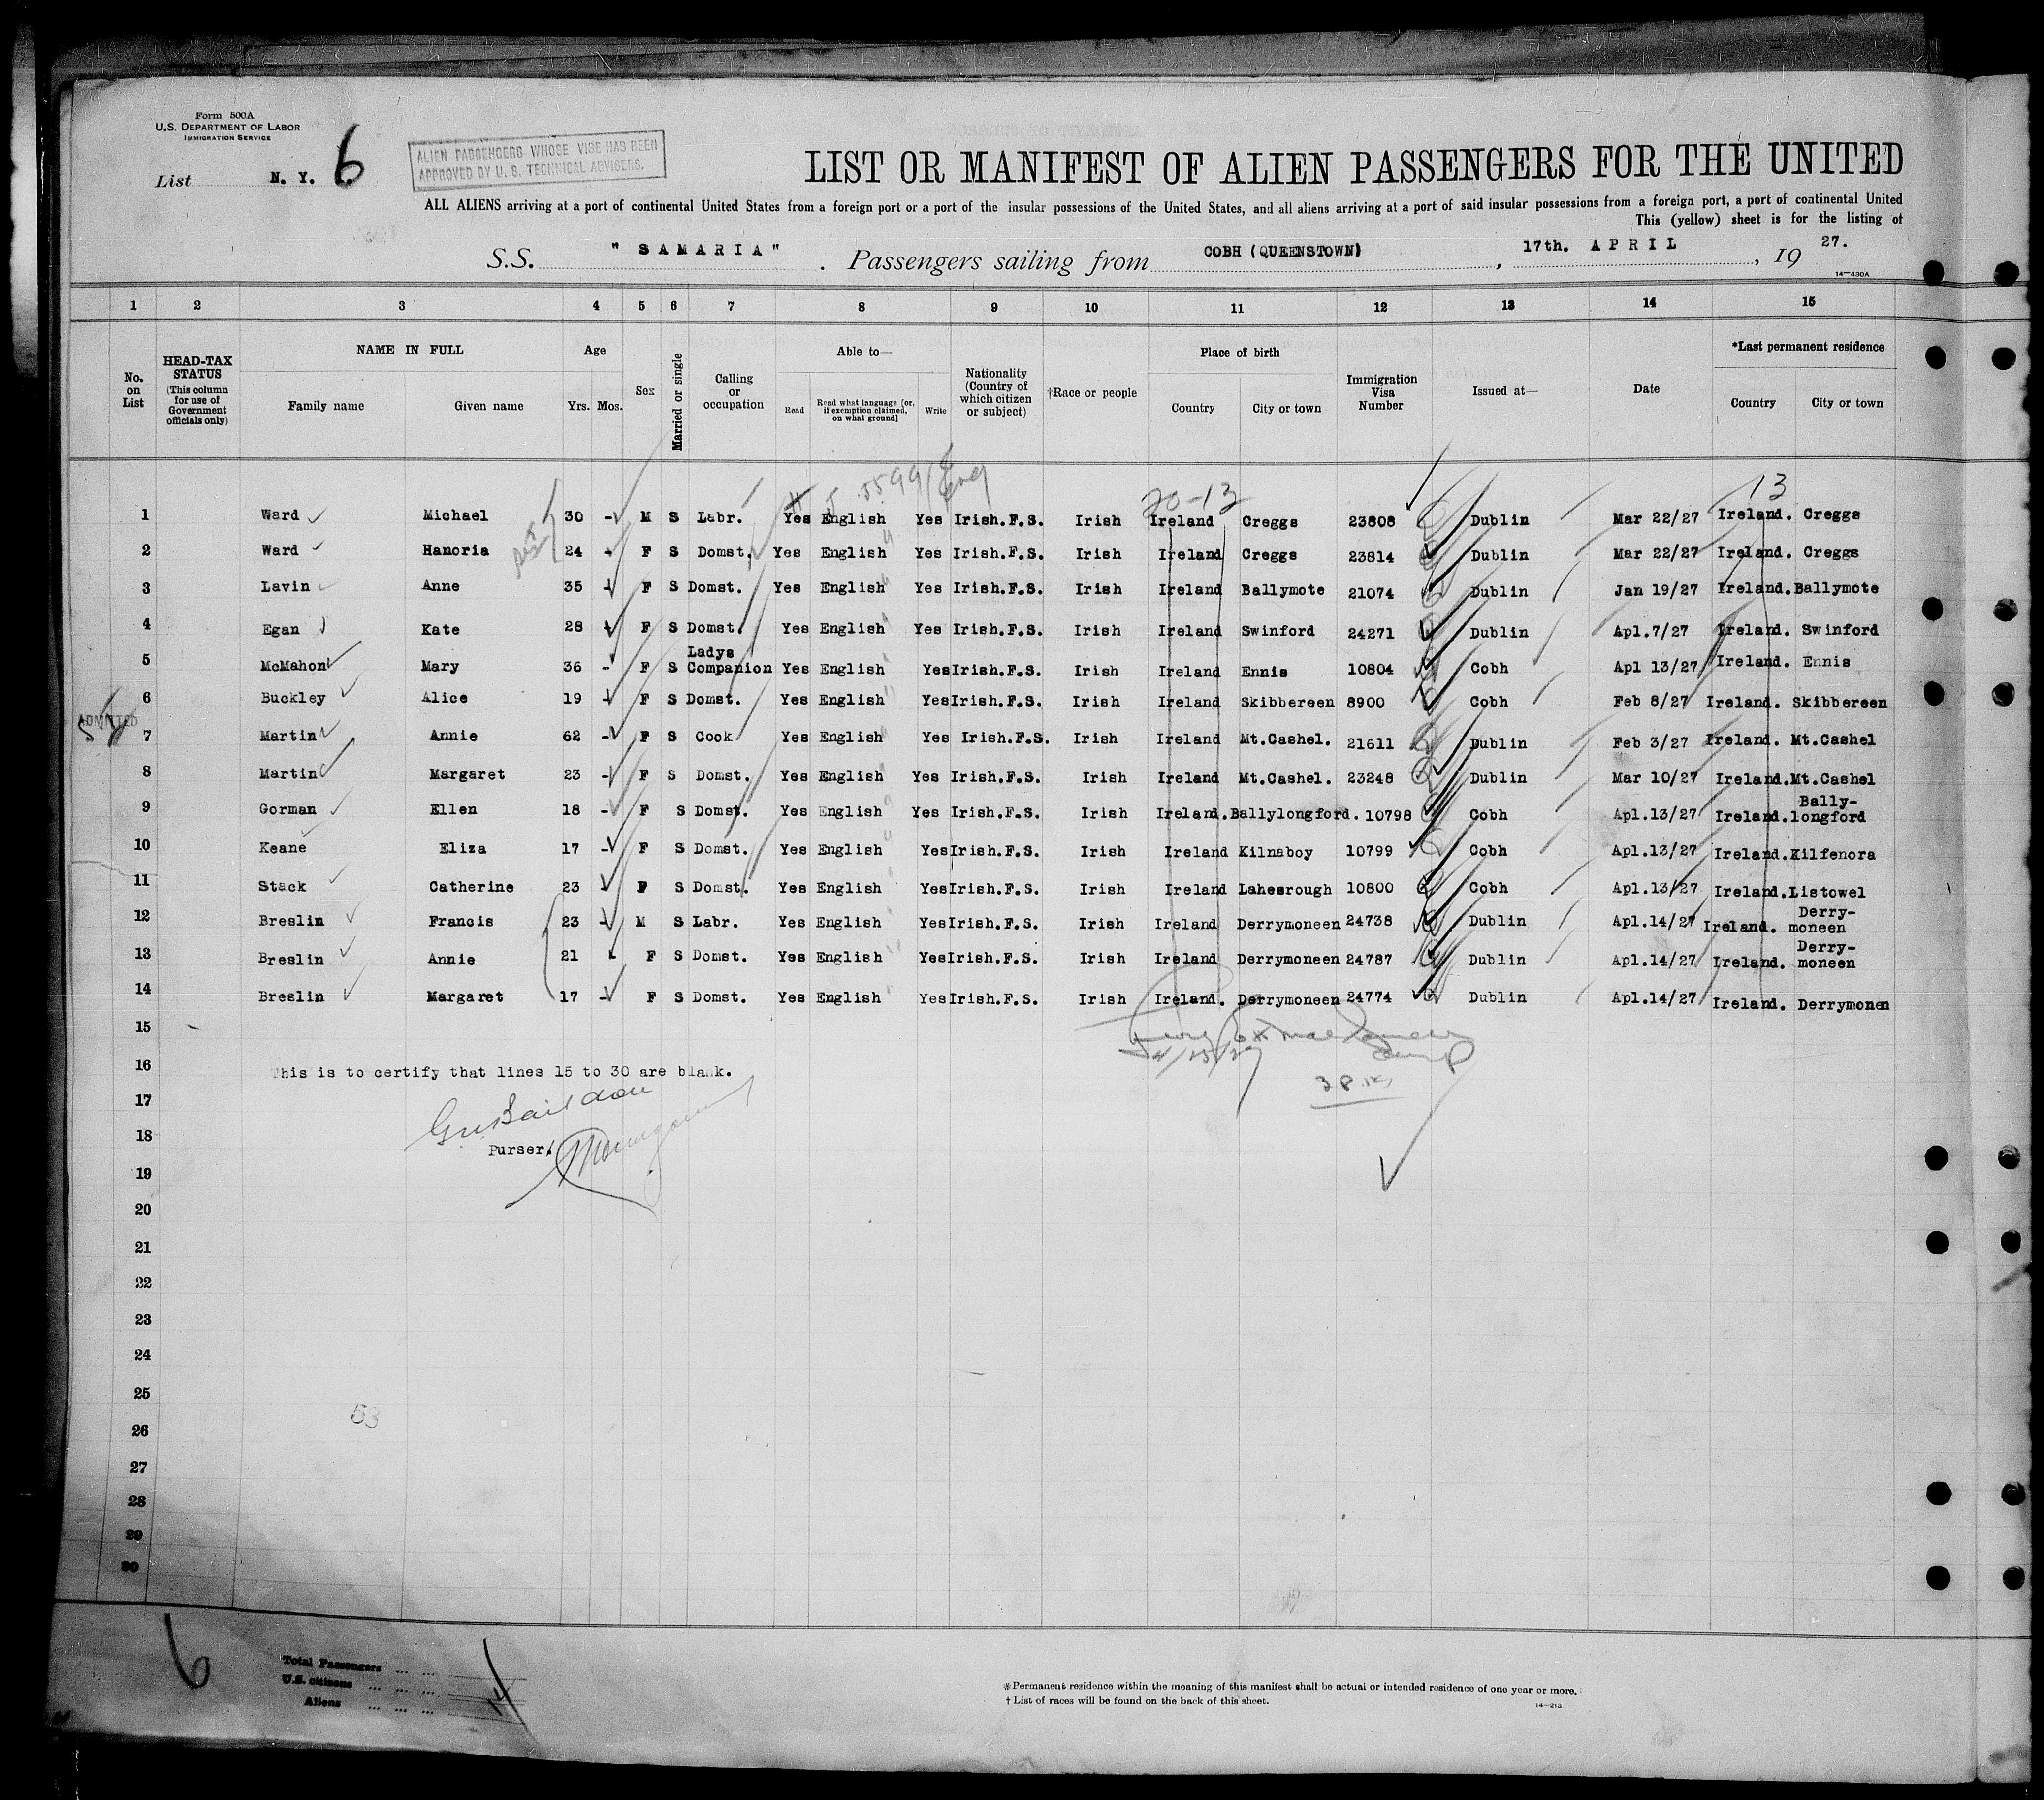 Form 500A
U.S. DEPARTMENT OF LABOR
IMMIGRATION SERVICE
List N. Y. 6
ALIEN PASSENGERS WHOSE VISE HAS BEEN
APPROVED BY U. S. TECHNICAL ADVISERS.
LIST OR MANIFEST OF ALIEN PASSENGERS FOR THE UNITED
ALL ALIENS arriving at a port of continental United States from a foreign port or a port of the insular possessions of the United States, and all aliens arriving at a port of said insular possessions from a foreign port, a port of continental United
This (yellow) sheet is for the listing of
S.S. " SAMARIA " . Passengers sailing from COBH (QUEENSTOWN) , 17th. APRIL , 19 27.
14—430A
1 2 3 4 5 6 7 8 9 10 11 12 13 14 15
No. on List
HEAD-TAX STATUS (This column for use of Government officials only)
NAME IN FULL
Family name Given name
Age
Yrs. Mos.
Sex
Married or single
Calling or occupation
Able to—
Read Read what language [or, if exemption claimed, on what ground] Write
Nationality (Country of which citizen or subject)
†Race or people
Place of birth
Country City or town
Immigration Visa Number
Issued at—
Date
*Last permanent residence
Country City or town
5599/ Eng
20-13 13
1 Ward Michael 30 - M S Labr. Yes English Yes Irish.F.S. Irish Ireland Creggs 23808 Dublin Mar 22/27 Ireland. Creggs
2 Ward Hanoria 24 - F S Domst. Yes English Yes Irish.F.S. Irish Ireland Creggs 23814 Dublin Mar 22/27 Ireland. Creggs
3 Lavin Anne 35 - F S Domst. Yes English Yes Irish.F.S. Irish Ireland Ballymote 21074 Dublin Jan 19/27 Ireland. Ballymote
4 Egan Kate 28 - F S Domst. Yes English Yes Irish.F.S. Irish Ireland Swinford 24271 Dublin Apl.7/27 Ireland. Swinford
5 McMahon Mary 36 - F S Ladys Companion Yes English Yes Irish.F.S. Irish Ireland Ennis 10804 Cobh Apl 13/27 Ireland. Ennis
6 Buckley Alice 19 - F S Domst. Yes English Yes Irish.F.S. Irish Ireland Skibbereen 8900 Cobh Feb 8/27 Ireland. Skibbereen
ADMITTED
7 Martin Annie 62 - F S Cook Yes English Yes Irish.F.S. Irish Ireland Mt.Cashel. 21611 Dublin Feb 3/27 Ireland. Mt.Cashel
8 Martin Margaret 23 - F S Domst. Yes English Yes Irish.F.S. Irish Ireland Mt.Cashel. 23248 Dublin Mar 10/27 Ireland. Mt.Cashel
9 Gorman Ellen 18 - F S Domst. Yes English Yes Irish.F.S. Irish Ireland. Ballylongford. 10798 Cobh Apl.13/27 Ireland. Bally-longford
10 Keane Eliza 17 - F S Domst. Yes English Yes Irish.F.S. Irish Ireland Kilnaboy 10799 Cobh Apl.13/27 Ireland. Kilfenora
11 Stack Catherine 23 - F S Domst. Yes English Yes Irish.F.S. Irish Ireland Lahesrough 10800 Cobh Apl.13/27 Ireland. Listowel
12 Breslin Francis 23 - M S Labr. Yes English Yes Irish.F.S. Irish Ireland Derrymoneen 24738 Dublin Apl.14/27 Ireland. Derry-moneen
13 Breslin Annie 21 - F S Domst. Yes English Yes Irish.F.S. Irish Ireland Derrymoneen 24787 Dublin Apl.14/27 Ireland. Derry-moneen
14 Breslin Margaret 17 - F S Domst. Yes English Yes Irish.F.S. Irish Ireland. Derrymoneen 24774 Dublin Apl.14/27 Ireland. Derrymonen
15
16 This is to certify that lines 15 to 30 are blank.
17
18 Purser.
19
20
21
22
23
24
25
53
26
27
28
29
30
6
Total Passengers ... ...
U.S. citizens ... ... ...
Aliens ... ... ...
14
*Permanent residence within the meaning of this manifest shall be actual or intended residence of one year or more.
† List of races will be found on the back of this sheet.
14—213